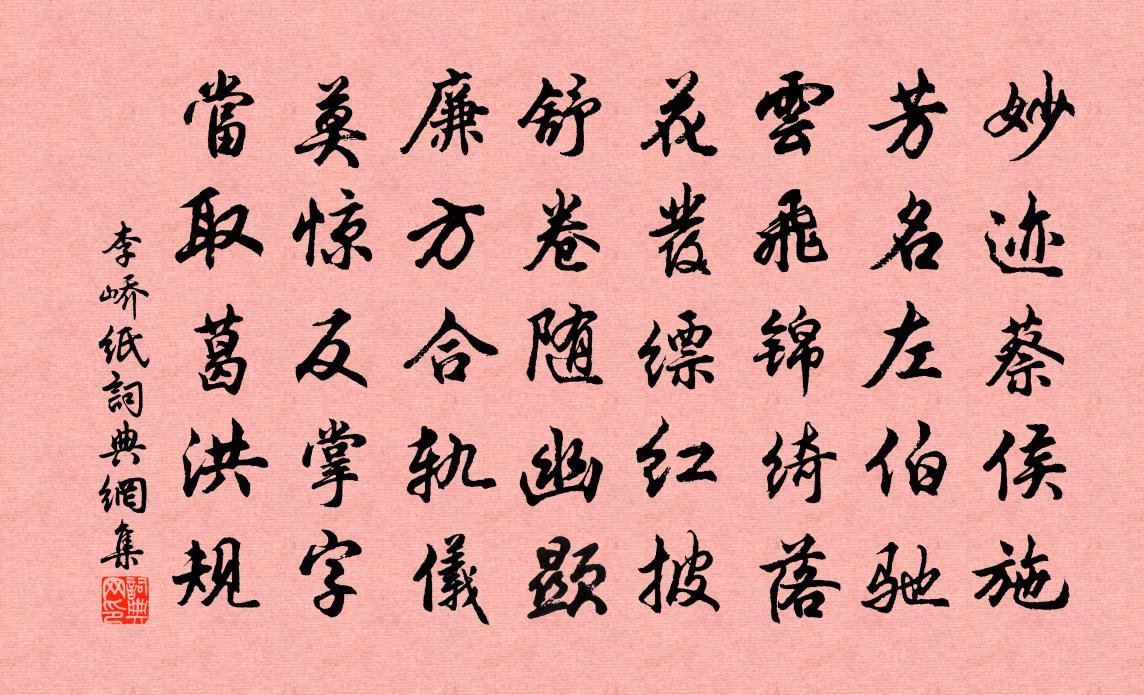 妙迹蔡侯施
芳名左伯驰
雲飛锦绮落
花發缥红披
舒卷随幽顯
廉方合轨儀
莫惊反掌字
當取葛洪規
李嶠纸詞典網集
詞典